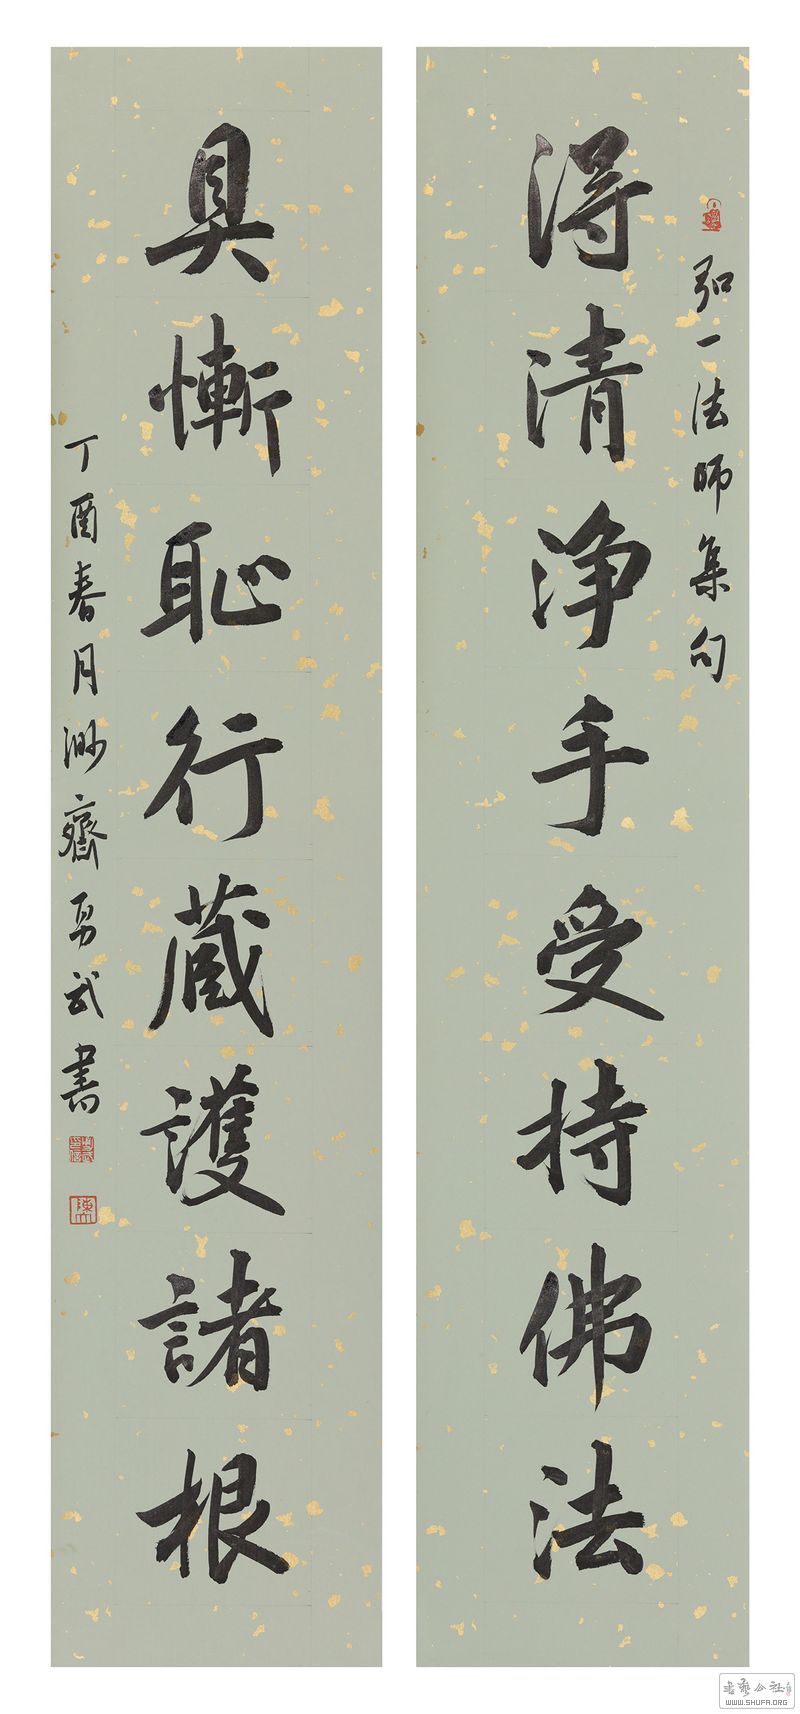 弘一法師集句
得清淨手受持佛法
具慚恥行蔵護諸根
丁酉春月渺齋勇武書
陳
WWW.SHUFA.ORG